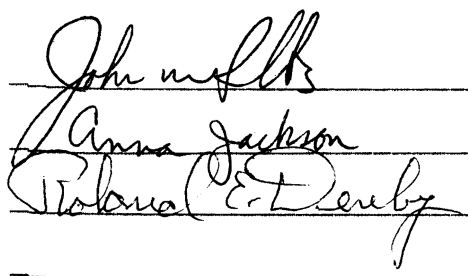 John
Anna Jackson
Roland E. Dereby